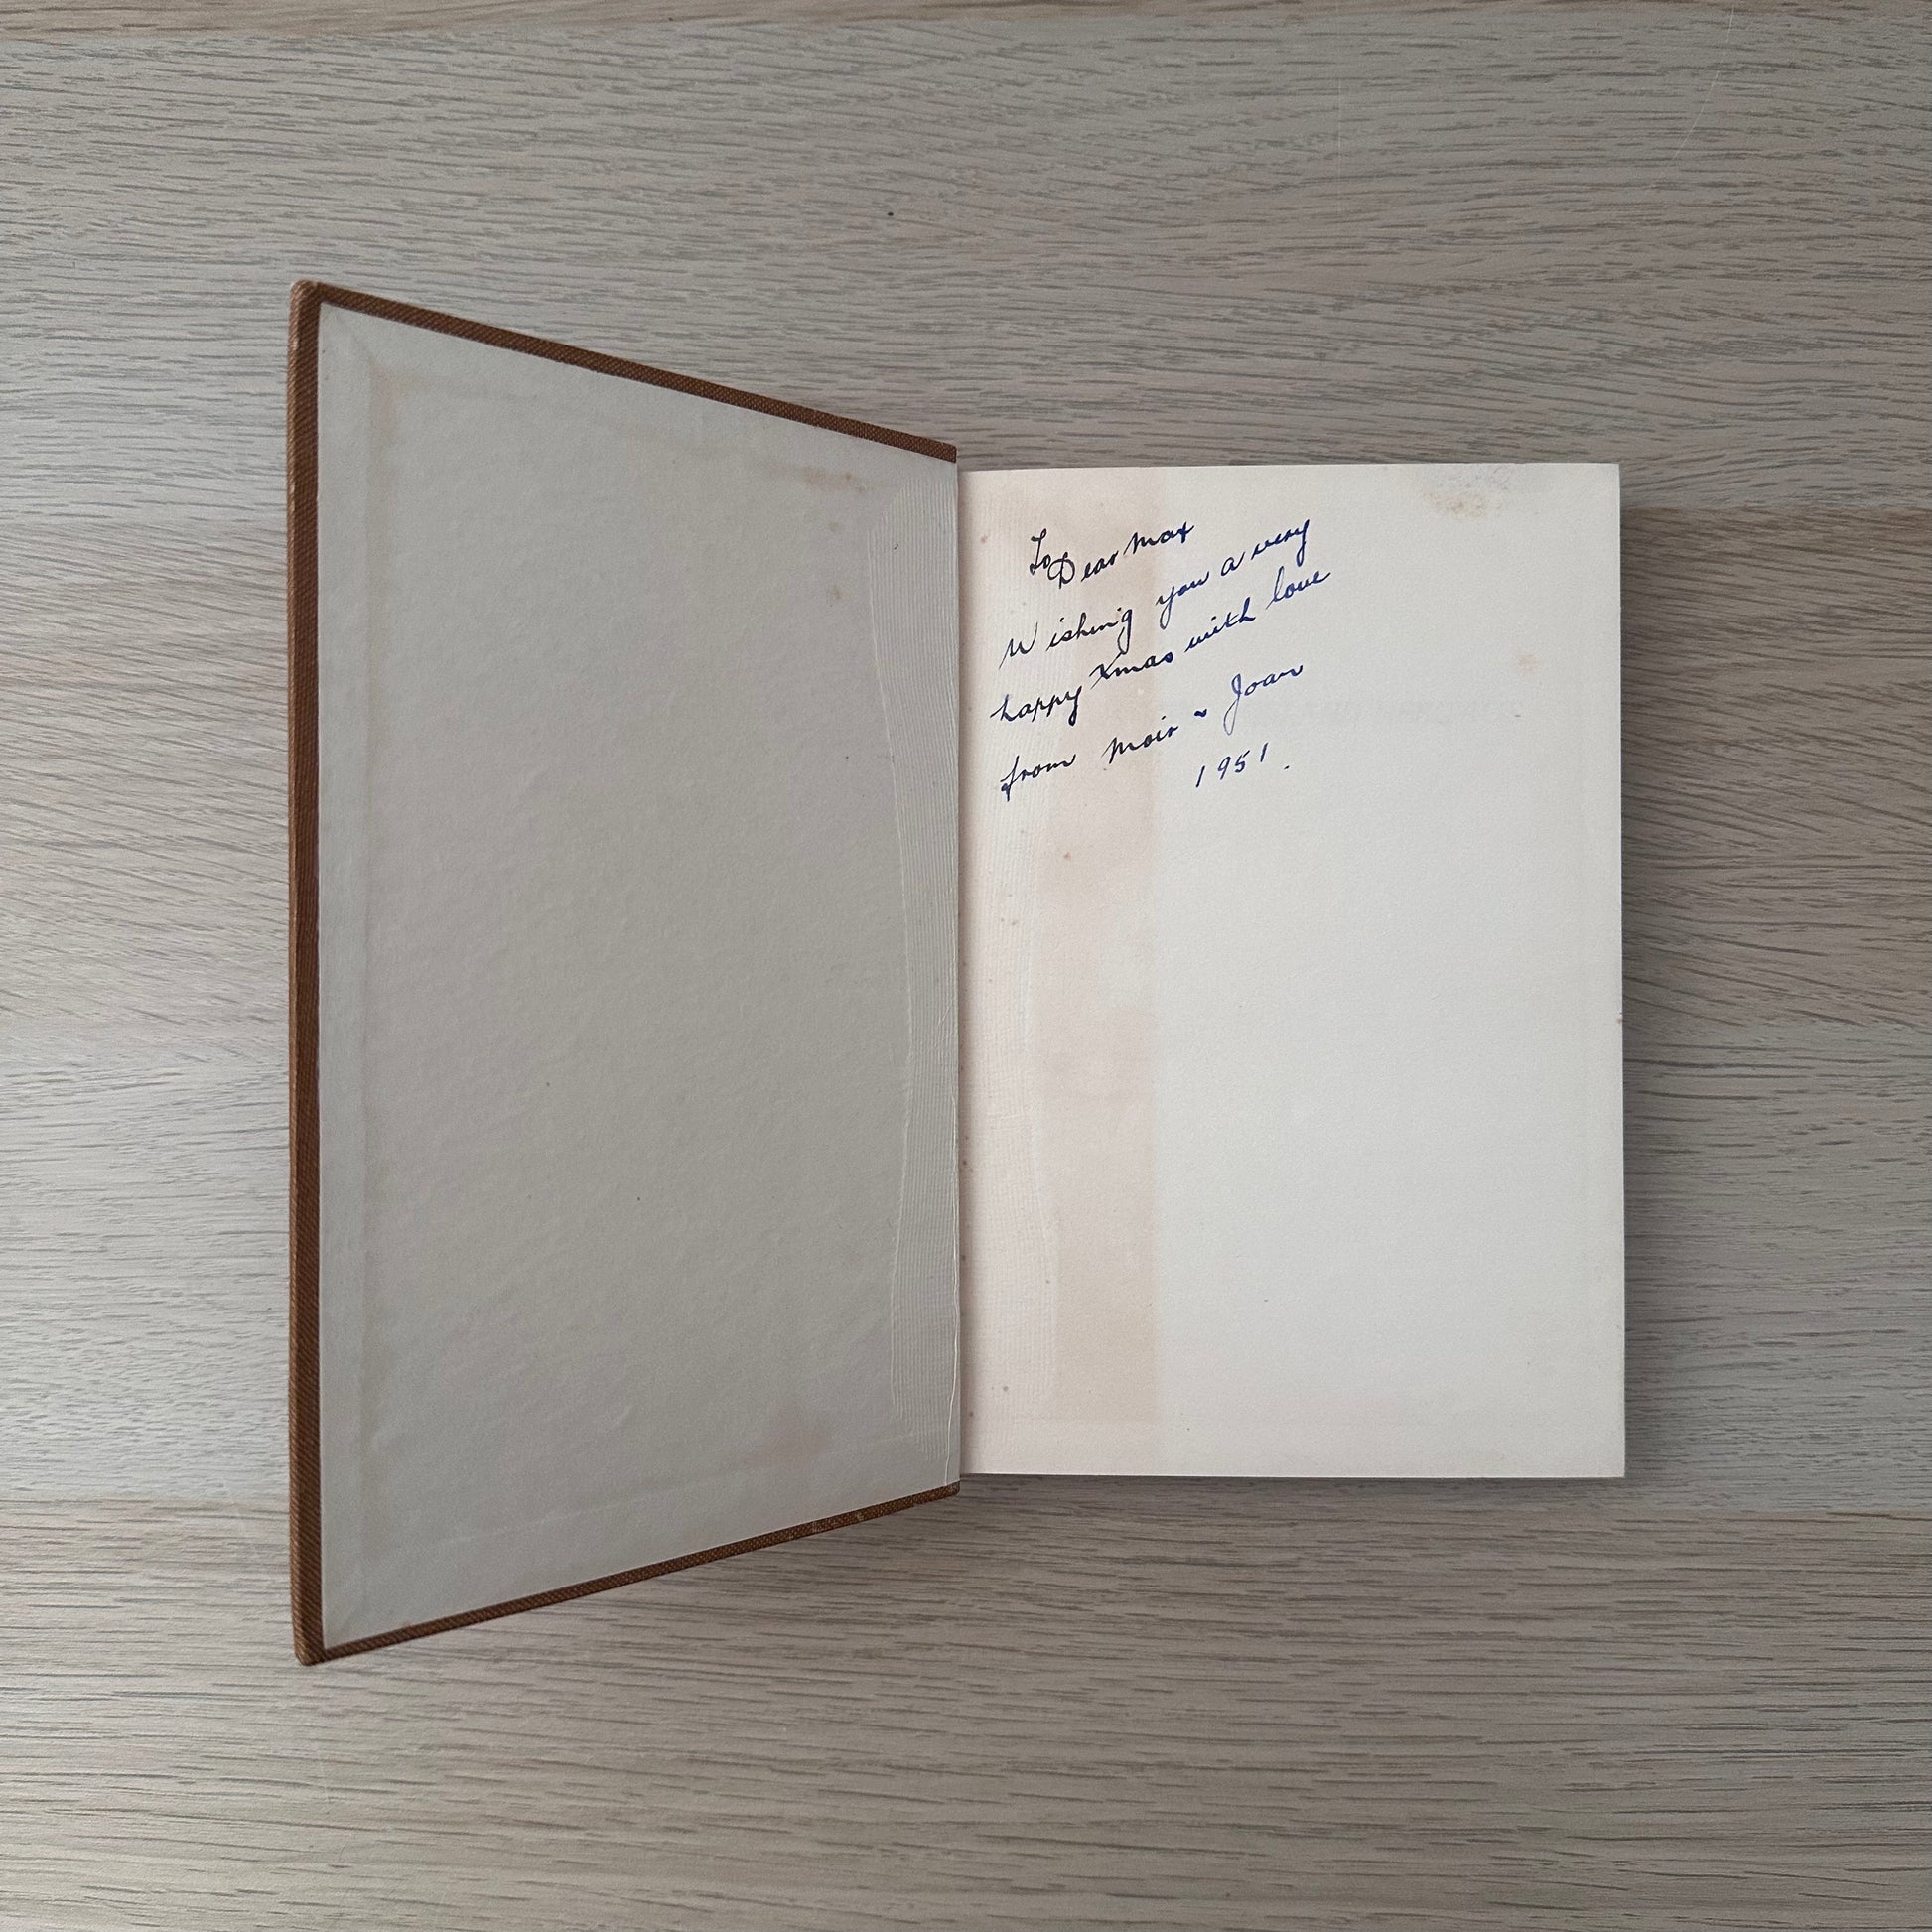 To Dear Max
Wishing you a very
happy Xmas with love
from Moir ~ Joan
1951.